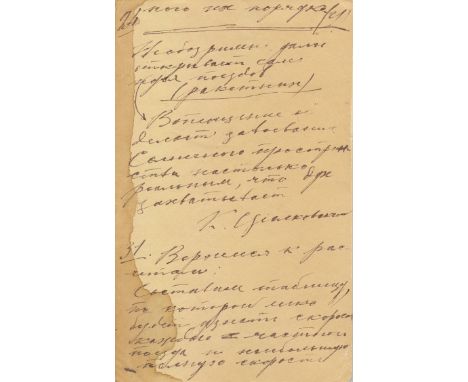 24
ного их порядка
Необозримы дали
открывает сам
поездов
(ракетных)
Воплощение и
делают завоевание
Солнечного простран
ства настолько
реальным, что дух
захватывает
К. Циолковский
31. Вернемся к рас-
четам:
Составим таблицу,
из которой можно
будет узнать скорость
каждого частного
поезда и наибольшую
полную скорость